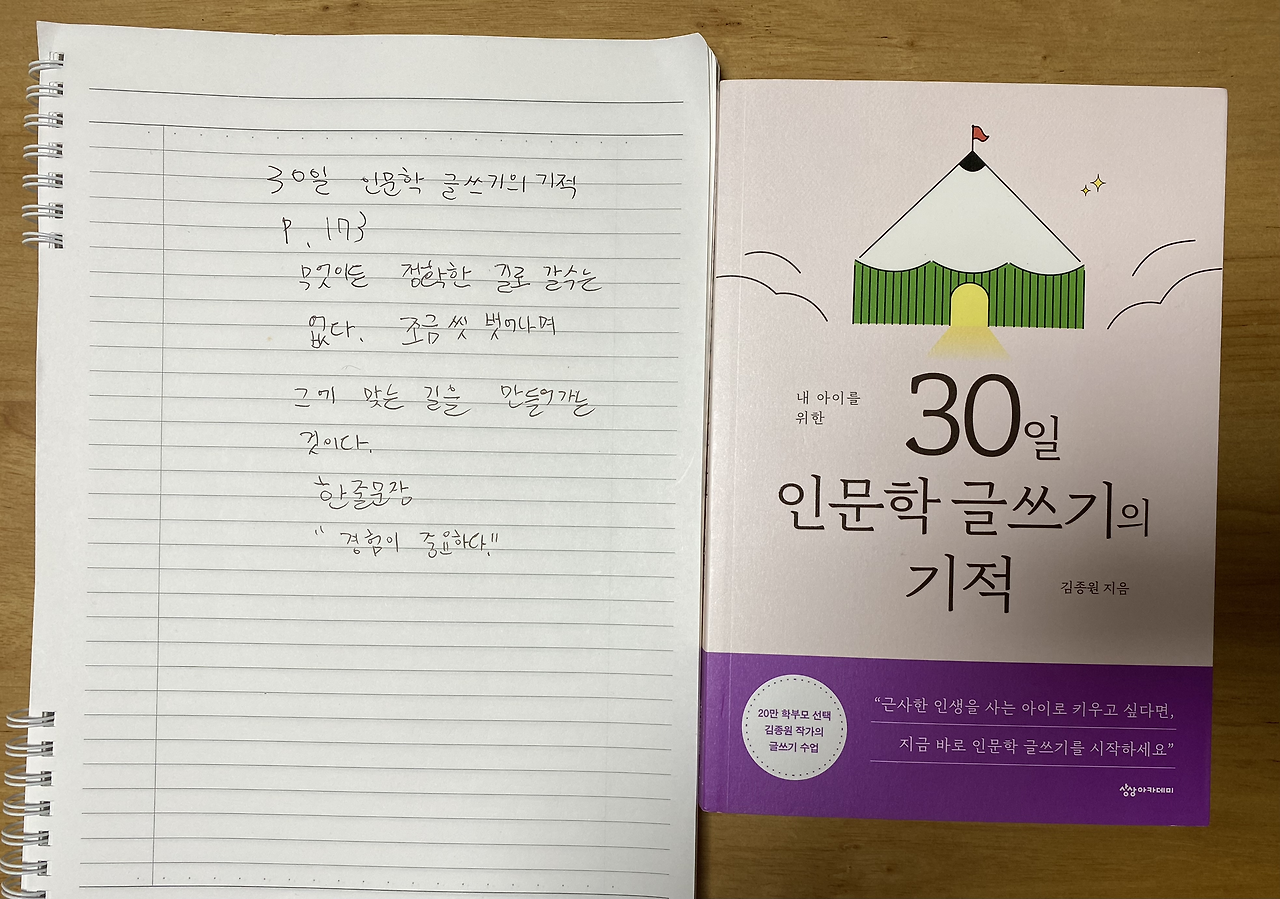 30일 인문학 글쓰기의 기적
P. 173
무엇이든 정확한 길로 갈수는
없다. 조금씩 벗어나며
그에 맞는 길을 만들어가는
것이다.
한줄문장
"경험이 중요하다."
내 아이를
위한
30일
인문학 글쓰기의
기적
김종원 지음
20만 학부모 선택
김종원 작가의
글쓰기 수업
“근사한 인생을 사는 아이로 키우고 싶다면,
지금 바로 인문학 글쓰기를 시작하세요”
상상아카데미